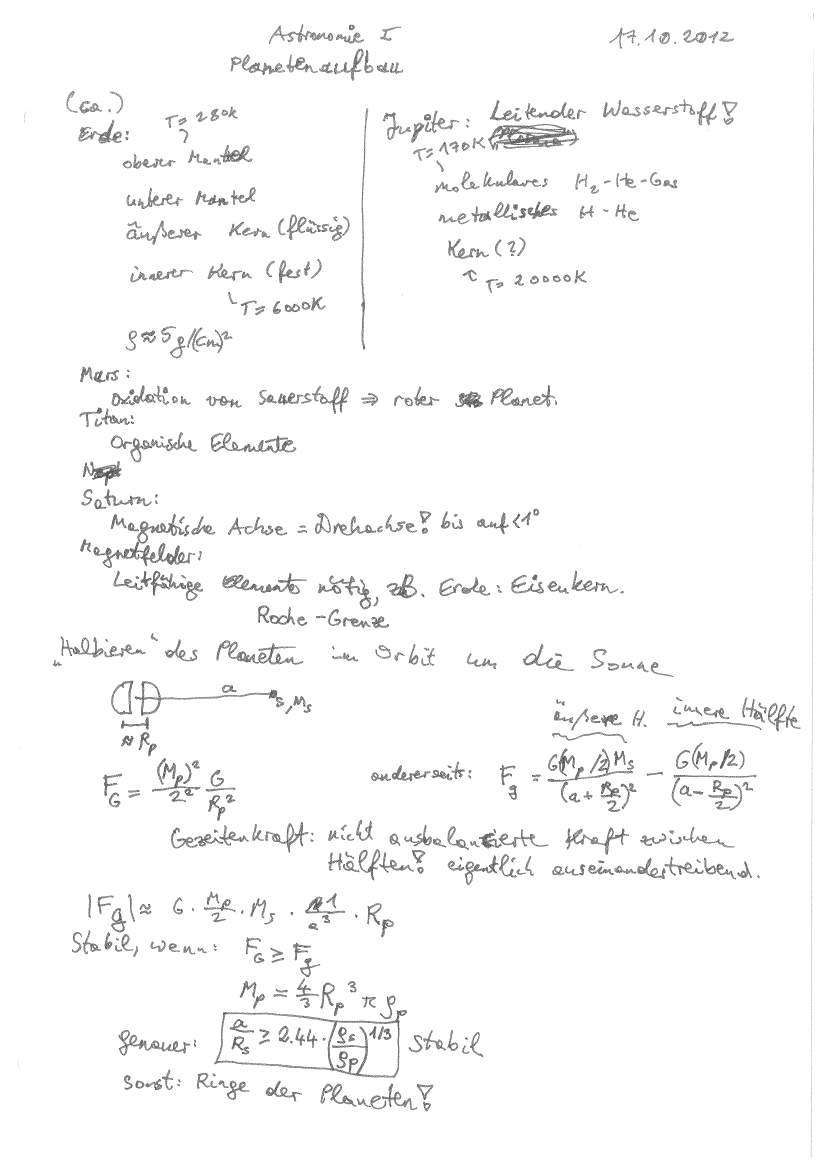 Astronomie I 17.10.2012
Planetenaufbau
(ca.)
Erde: T=280K
oberer Mantel
unterer Mantel
äußerer Kern (flüssig)
innerer Kern (fest)
T=6000K
ρ≈5g/(cm)²
Jupiter: Leitender Wasserstoff!
T=170K
molekulares H₂-He-Gas
metallisches H-He
Kern (?)
T=20000K
Mars:
Oxidation von Sauerstoff ⇒ roter Planet.
Titan:
Organische Elemente
Saturn:
Magnetische Achse = Drehachse! bis auf <1°
Magnetfelder:
Leitfähige Elemente nötig, zB. Erde: Eisenkern.
Roche-Grenze
„Halbieren“ des Planeten im Orbit um die Sonne
a S, M_S
≈ R_p
äußere H. innere Hälfte
F_G = (M_p)²/2² G/R_p² andererseits: F_g = G(M_p/2)M_S/(a+R_p/2)² - G(M_p/2)/(a-R_p/2)²
Gezeitenkraft: nicht ausbalancierte Kraft zwischen
Hälften! eigentlich auseinandertreibend.
|F_g| ≈ G · M_p/2 · M_S · 1/a³ · R_p
Stabil, wenn: F_G ≥ F_g
M_p = 4/3 R_p³ π ρ_p
genauer: a/R_S ≥ 2.44 · (ρ_S/ρ_p)^1/3 stabil
sonst: Ringe der Planeten!